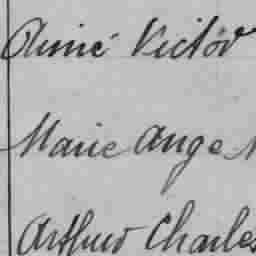 Aimé Victor
Marie Ange
Arthur Charles